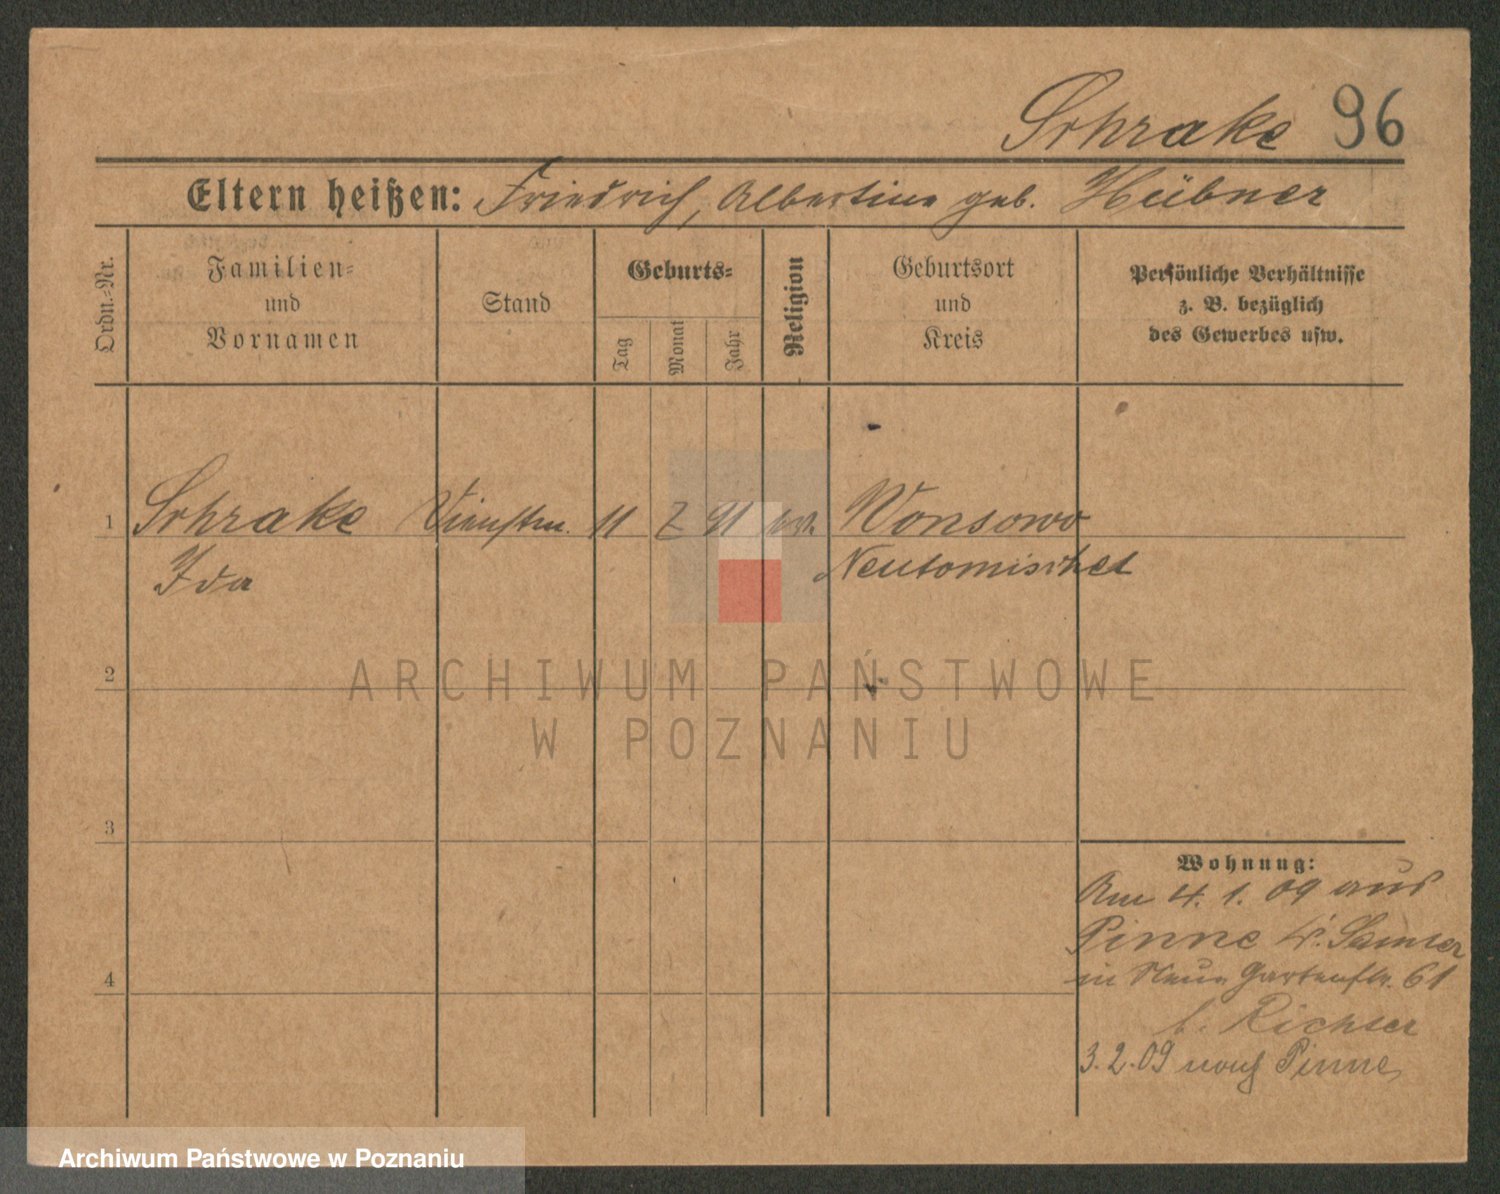 Schrake 96
Eltern heißen: Friedrich, Albertine geb. Hübner
Ordn.-Nr.
Familien-
und
Vornamen
Stand
Geburts-
Tag
Monat
Jahr
Religion
Geburtsort
und
Kreis
Persönliche Verhältnisse
z. B. bezüglich
des Gewerbes usw.
1 Schrake Dienstm. 11 2 91 ev. Wonsowo
Ida Neutomischel
2
ARCHIWUM PAŃSTWOWE
W POZNANIU
3
Wohnung:
Am 4. 1. 09 aus
Pinne Kr. Samter
in Neue Gartenstr. 61
4
b. Richter
3.2.09 nach Pinne
Archiwum Państwowe w Poznaniu